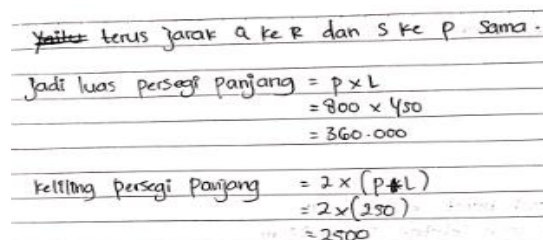 terus jarak Q ke R dan S ke P sama.
Jadi luas persegi panjang = P x L
= 800 x 450
= 360.000
keliling persegi panjang = 2 x (P+L)
= 2 x (250)
= 2500